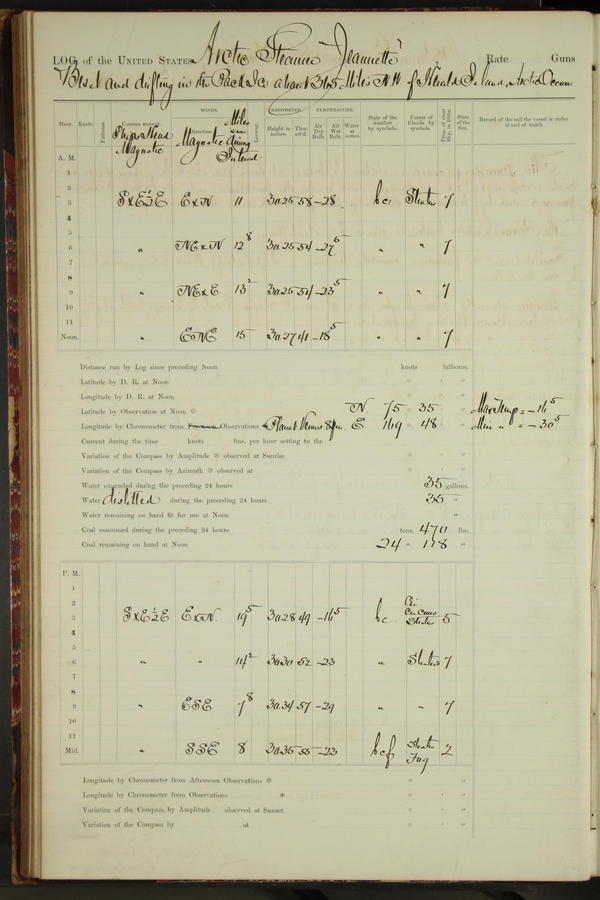 LOG of the UNITED STATES Arctic Steamer "Jeannette" Rate Guns
Beset and drifting in the Pack Ice about 365 Miles N.W. of Herald Island, Arctic Ocean
WINDS. BAROMETER. TEMPERATURE.
Hour. Knots. Fathoms. Courses steered. Ship's Head Magnetic Direction. Magnetic Miles during Interval Leeway. Height in inches. Ther. att'd. Air Dry Bulb. Air Wet Bulb. Water at surface. State of the weather by symbols. Forms of Clouds by symbols. Prop. of clear Sky, in 10ths. State of the Sea. Record of the sail the vessel is under at end of watch.
A. M.
1
2
3 SxE½E ExN 11 30.25 58 -28 bc Stratus 7
4
5
6 " NExN 12⁸ 30.25 54 -27⁵ " " 7
7
8
9 " NExE 13² 30.25 54 -23⁵ " " 7
10
11
Noon. " ENE 15 30.27 41 -18⁵ " " 7
Distance run by Log since preceding Noon knots fathoms.
Latitude by D. R. at Noon ° ' "
Longitude by D. R. at Noon ° ' "
Latitude by Observation at Noon ☉ N. 75 35 " Max Temp = -16⁵
Longitude by Chronometer from Forenoon Observations Planet Venus 8 pm. E. 169 48 " Min " = -30⁵
Current during the time knots fms. per hour setting to the
Variation of the Compass by Amplitude ☉ observed at Sunrise ° ' "
Variation of the Compass by Azimuth ☉ observed at ° ' "
Water expended during the preceding 24 hours 35 gallons.
Water distilled during the preceding 24 hours 35 "
Water remaining on hand fit for use at Noon "
Coal consumed during the preceding 24 hours tons. 470 lbs.
Coal remaining on hand at Noon 24 " 178 "
P. M.
1
2
3 SxE½E ExN 19⁵ 30.28 49 -16⁵ bc Ci Ci Cum Stratus 5
4
5
6 " " 14² 30.30 52 -23 " Stratus 7
7
8
9 " ESE 7⁸ 30.34 57 -29 " " 7
10
11
Mid. " SSE 8 30.36 55 -23 bcf Stratus Fog 2
Longitude by Chronometer from Afternoon Observations ☉ ° ' "
Longitude by Chronometer from Observations * ° ' "
Variation of the Compass by Amplitude observed at Sunset ° ' "
Variation of the Compass by at ° ' "